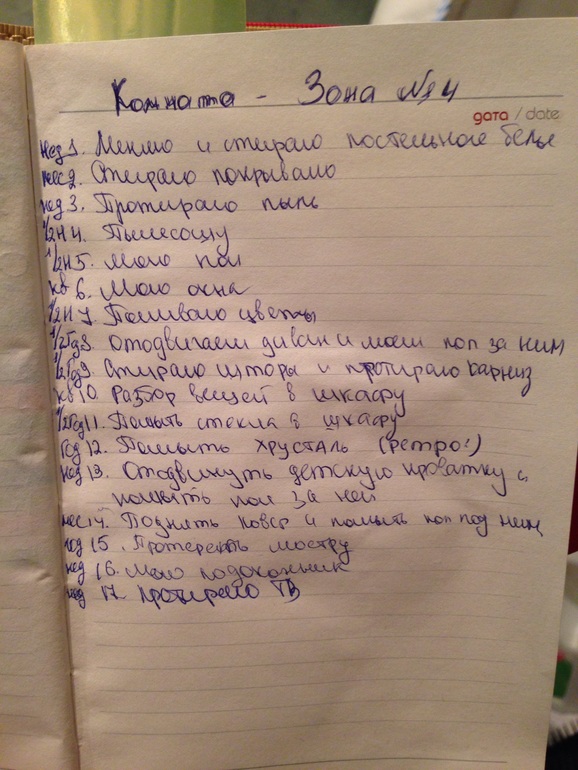 Комната - Зона №4
дата / date
нед 1. Меняю и стираю постельное белье
мес 2. Стираю покрывало
нед 3. Протираю пыль
1/2н 4. Пылесошу
1/2н 5. Мою пол
кв 6. Мою окна
1/2н 7. Поливаю цветы
1/2год 8. Отодвигаем диван и моем пол за ним
1/2год 9. Стираю шторы и протираю карниз
кв 10. Разбор вещей в шкафу
1/2год 11. Помыть стекла в шкафу
год 12. Помыть хрусталь (ретро!)
нед 13. Отодвинуть детскую кроватку и
помыть пол за ней
мес 14. Поднять ковер и помыть пол под ним
15. Протереть люстру
нед 16. Мою подоконник
нед 17. Протираю ТВ